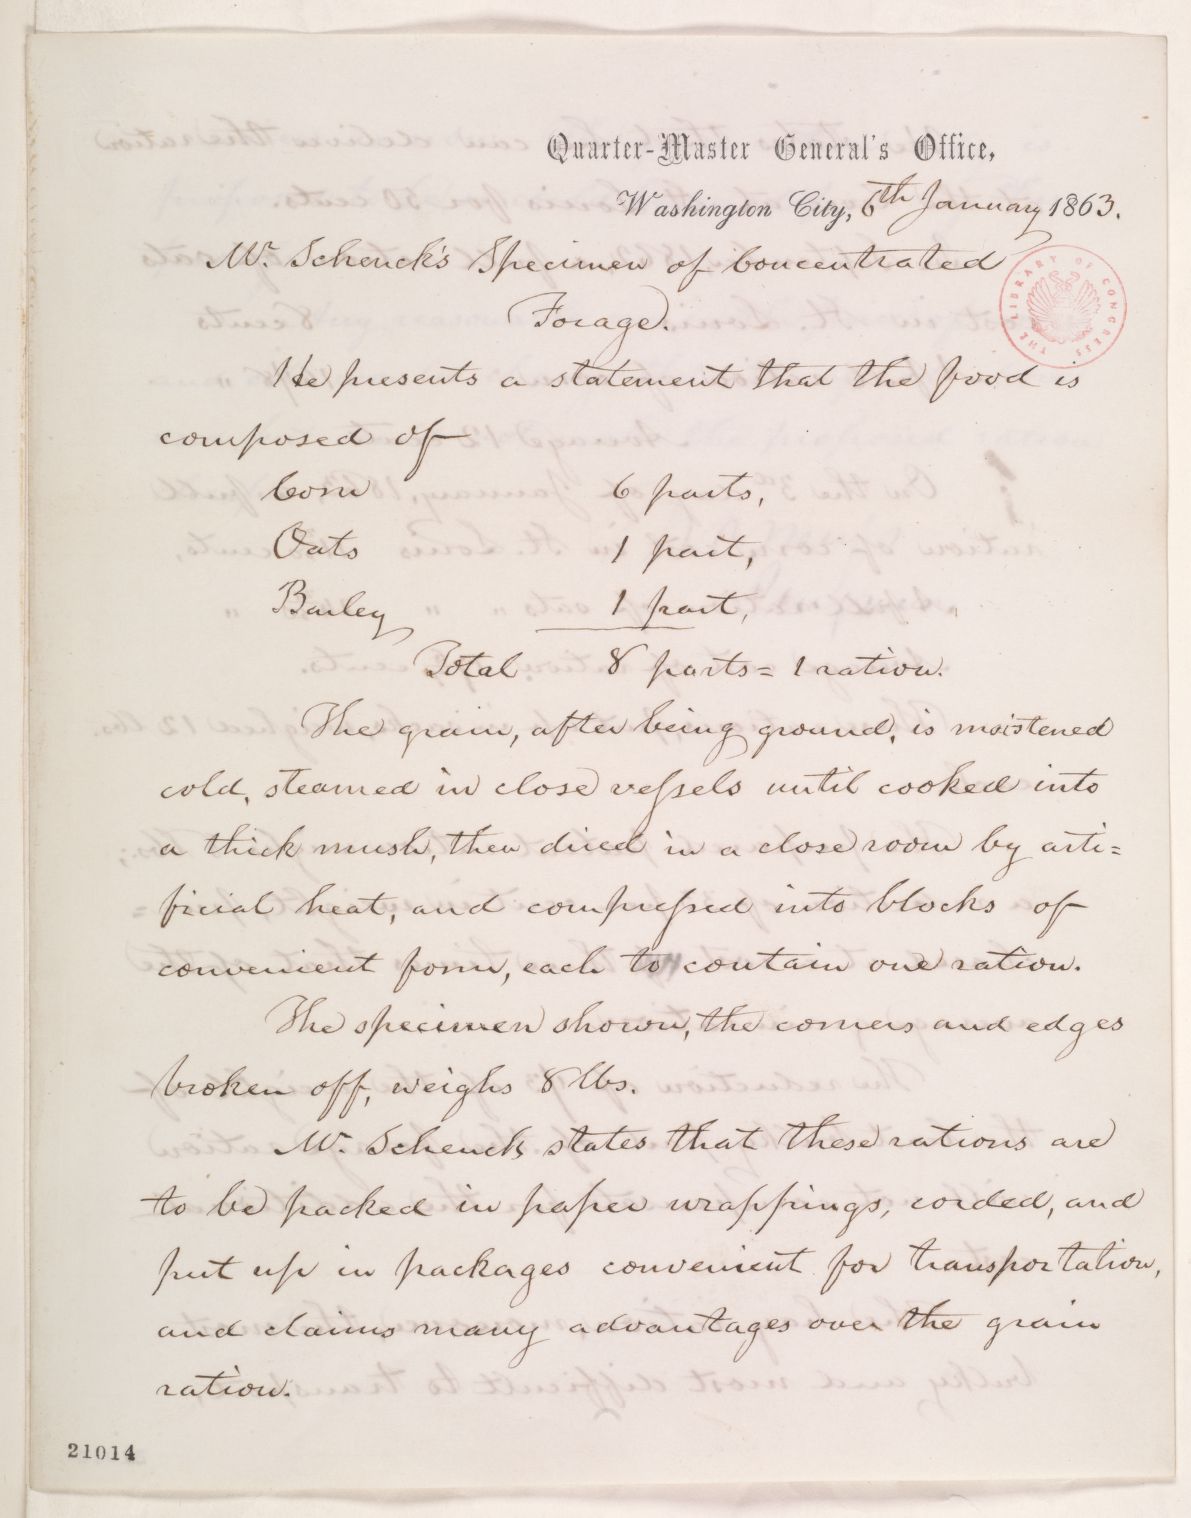 Quarter-Master General's Office,
Washington City, 6th January 1863.
Mr. Schenck's Specimen of Concentrated
Forage.
He presents a statement that the food is
composed of
Corn 6 parts,
Oats 1 part,
Barley 1 part,
Total 8 parts = 1 ration.
The grain, after being ground, is moistened
cold, steamed in close vessels until cooked into
a thick mush, then dried in a close room by arti=
ficial heat, and compressed into blocks of
convenient form, each to contain one ration.
The specimen shown, the corners and edges
broken off, weighs 8 lbs.
Mr. Schenck states that these rations are
to be packed in paper wrappings, corded, and
put up in packages convenient for transportation,
and claims many advantages over the grain
ration.
THE LIBRARY OF CONGRESS
21014